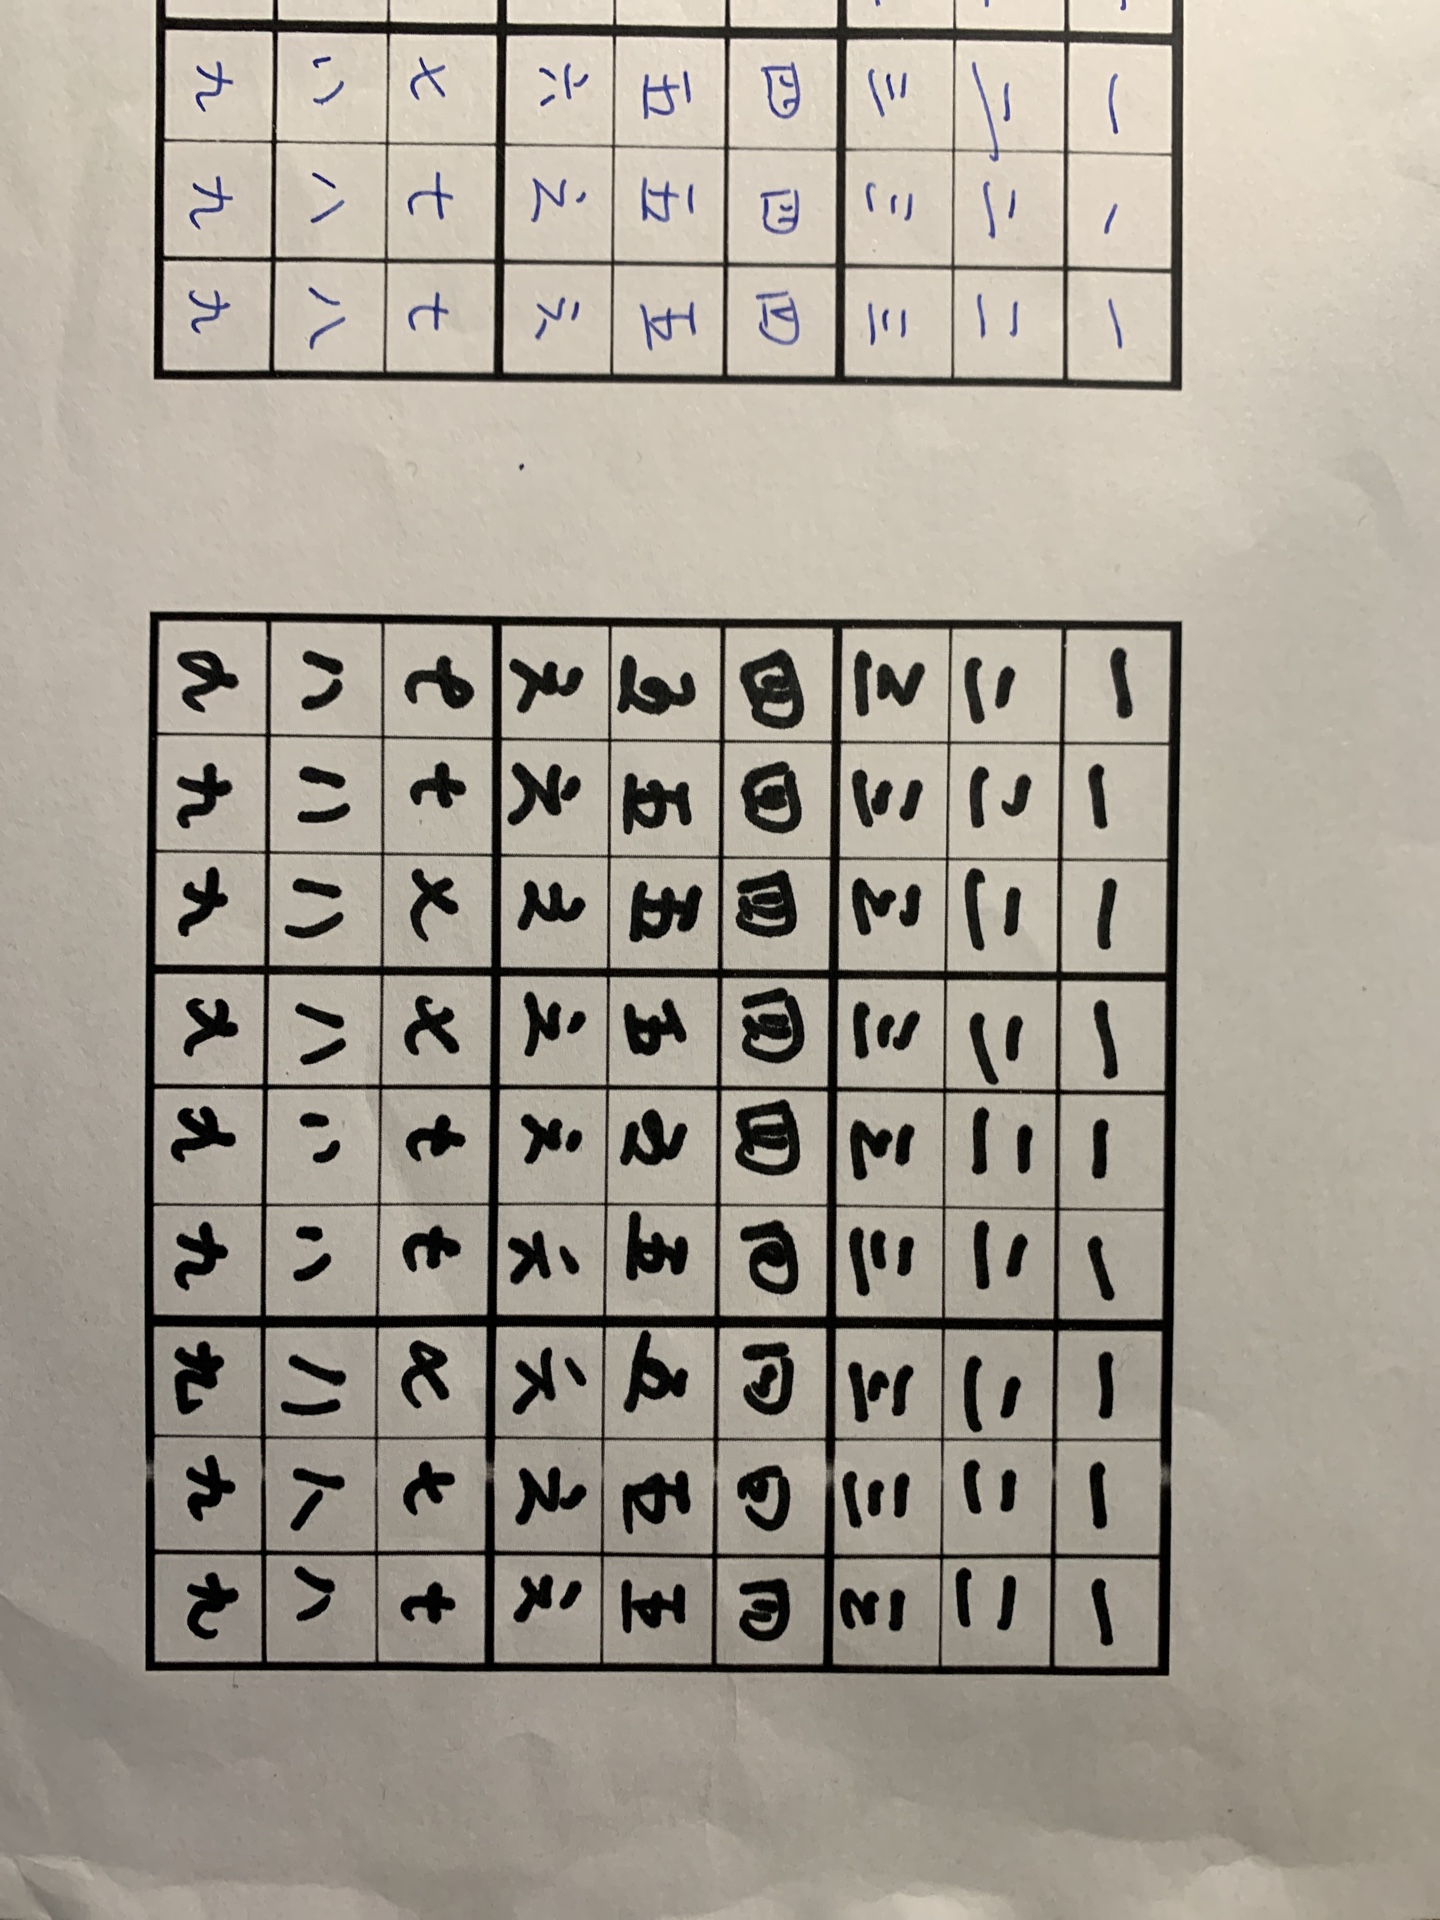 一 一 一
二 二 二
三 三 三
四 四 四
五 五 五
六 六 六
七 七 七
八 八 八
九 九 九
一 一 一 一 一 一 一 一 一
二 二 二 二 二 二 二 二 二
三 三 三 三 三 三 三 三 三
四 四 四 四 四 四 四 四 四
五 五 五 五 五 五 五 五 五
六 六 六 六 六 六 六 六 六
七 七 七 七 七 七 七 七 七
八 八 八 八 八 八 八 八 八
九 九 九 九 九 九 九 九 九